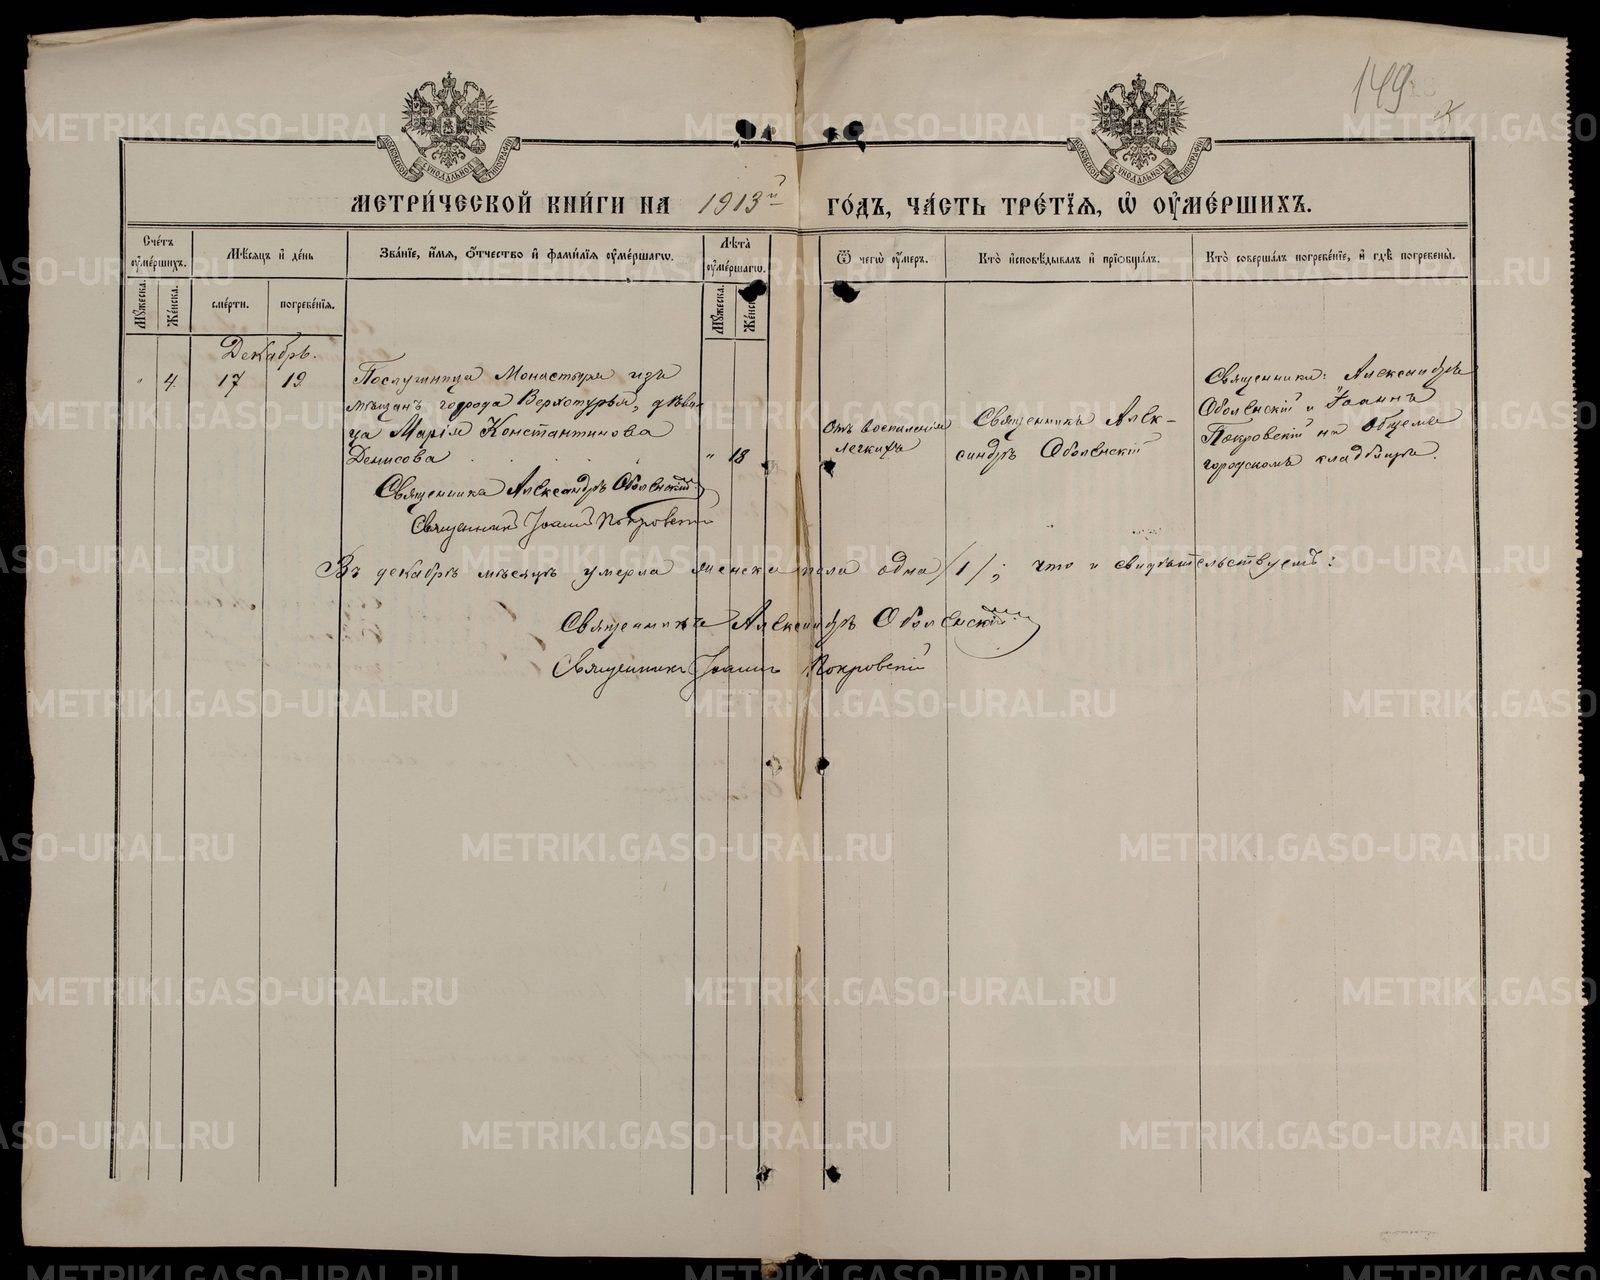 149
МЕТРИ́ЧЕСКОЙ КНИ́ГИ НА 1913й ГО́ДЪ, ЧА́СТЬ ТРЕ́ТЇЯ, Ѽ ОУ҆МЕ́РШИХЪ.
Сче́тъ оу҆ме́ршихъ.
Мѣ́сяцъ и҆ де́нь
Зва́нїе, и҆́мя, ѻ҆́тчество и҆ фами́лїя оу҆ме́ршагѡ.
Лѣ́та оу҆ме́ршагѡ.
Ѿ чегѡ̀ оу҆́меръ.
Кто̀ и҆сповѣ́дывалъ и҆ прїѡбща́лъ.
Кто̀ соверша́лъ погребе́нїе, и҆ гдѣ̀ погребены̀.
Мꙋ́жеска.
Же́нска.
сме́рти.
погребе́нїя.
Мꙋ́жеска.
Же́нска.
Декабрь.
" 4 17 19
Послушница Монастыря изъ
мѣщанъ города Верхотурья, дѣви
ца Марія Константинова
Денисова
" 18
Отъ воспаленія
легкихъ
Священникъ Алек-
сандръ Оболенскій
Священники: Александръ
Оболенскій и Іоаннъ
Покровскій на общемъ
городскомъ кладбищѣ.
Священникъ Александръ Оболенскій
Священникъ Іоаннъ Покровскій
Въ декабрѣ мѣсяцѣ умерла женска пола одна /1/; что и свидѣтельствуемъ:
Священникъ Александръ Оболенскій
Священникъ Іоаннъ Покровскій
METRIKI.GASO-URAL.RU